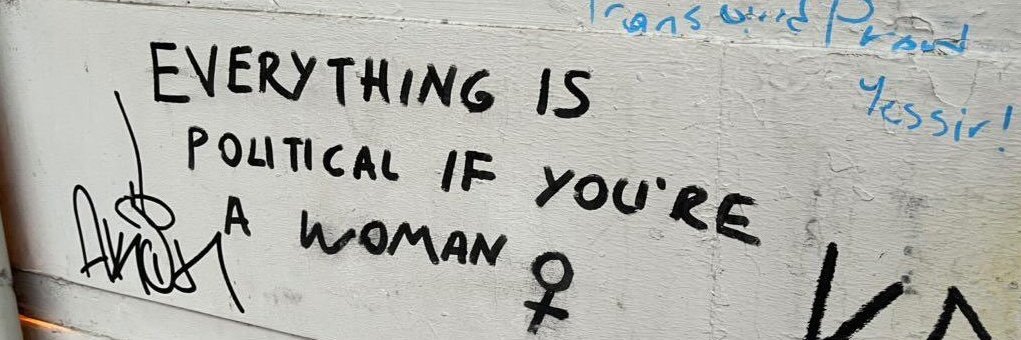 Trans and Proud
Yessir!
EVERYTHING IS
POLITICAL IF YOU'RE
A WOMAN ♀